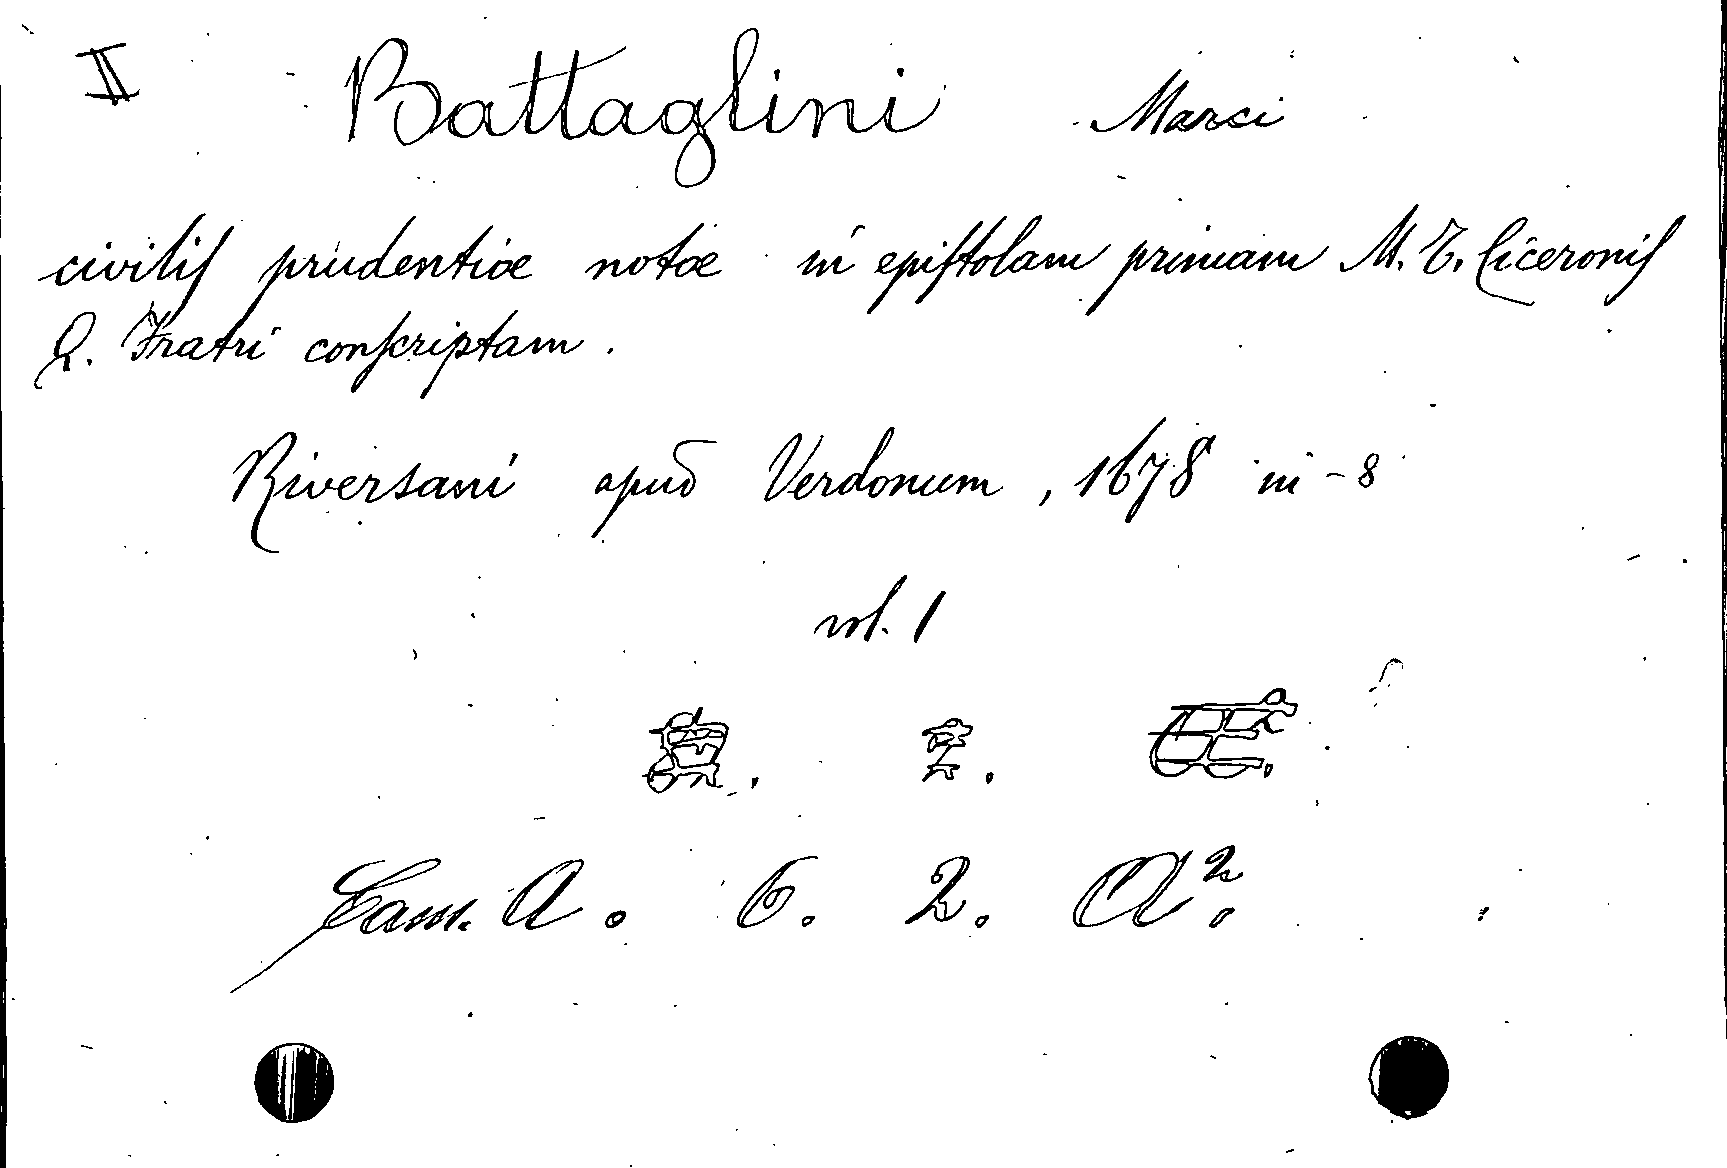 II Battaglini Marci
civiliſ prudentiæ notæ in epiſtolam primam M. T. Ciceroniſ
Q. Fratri conſcriptam.
Riversani apud Verdonum, 1678 in-8
vol. 1
Cam. A. 6. 2. A².